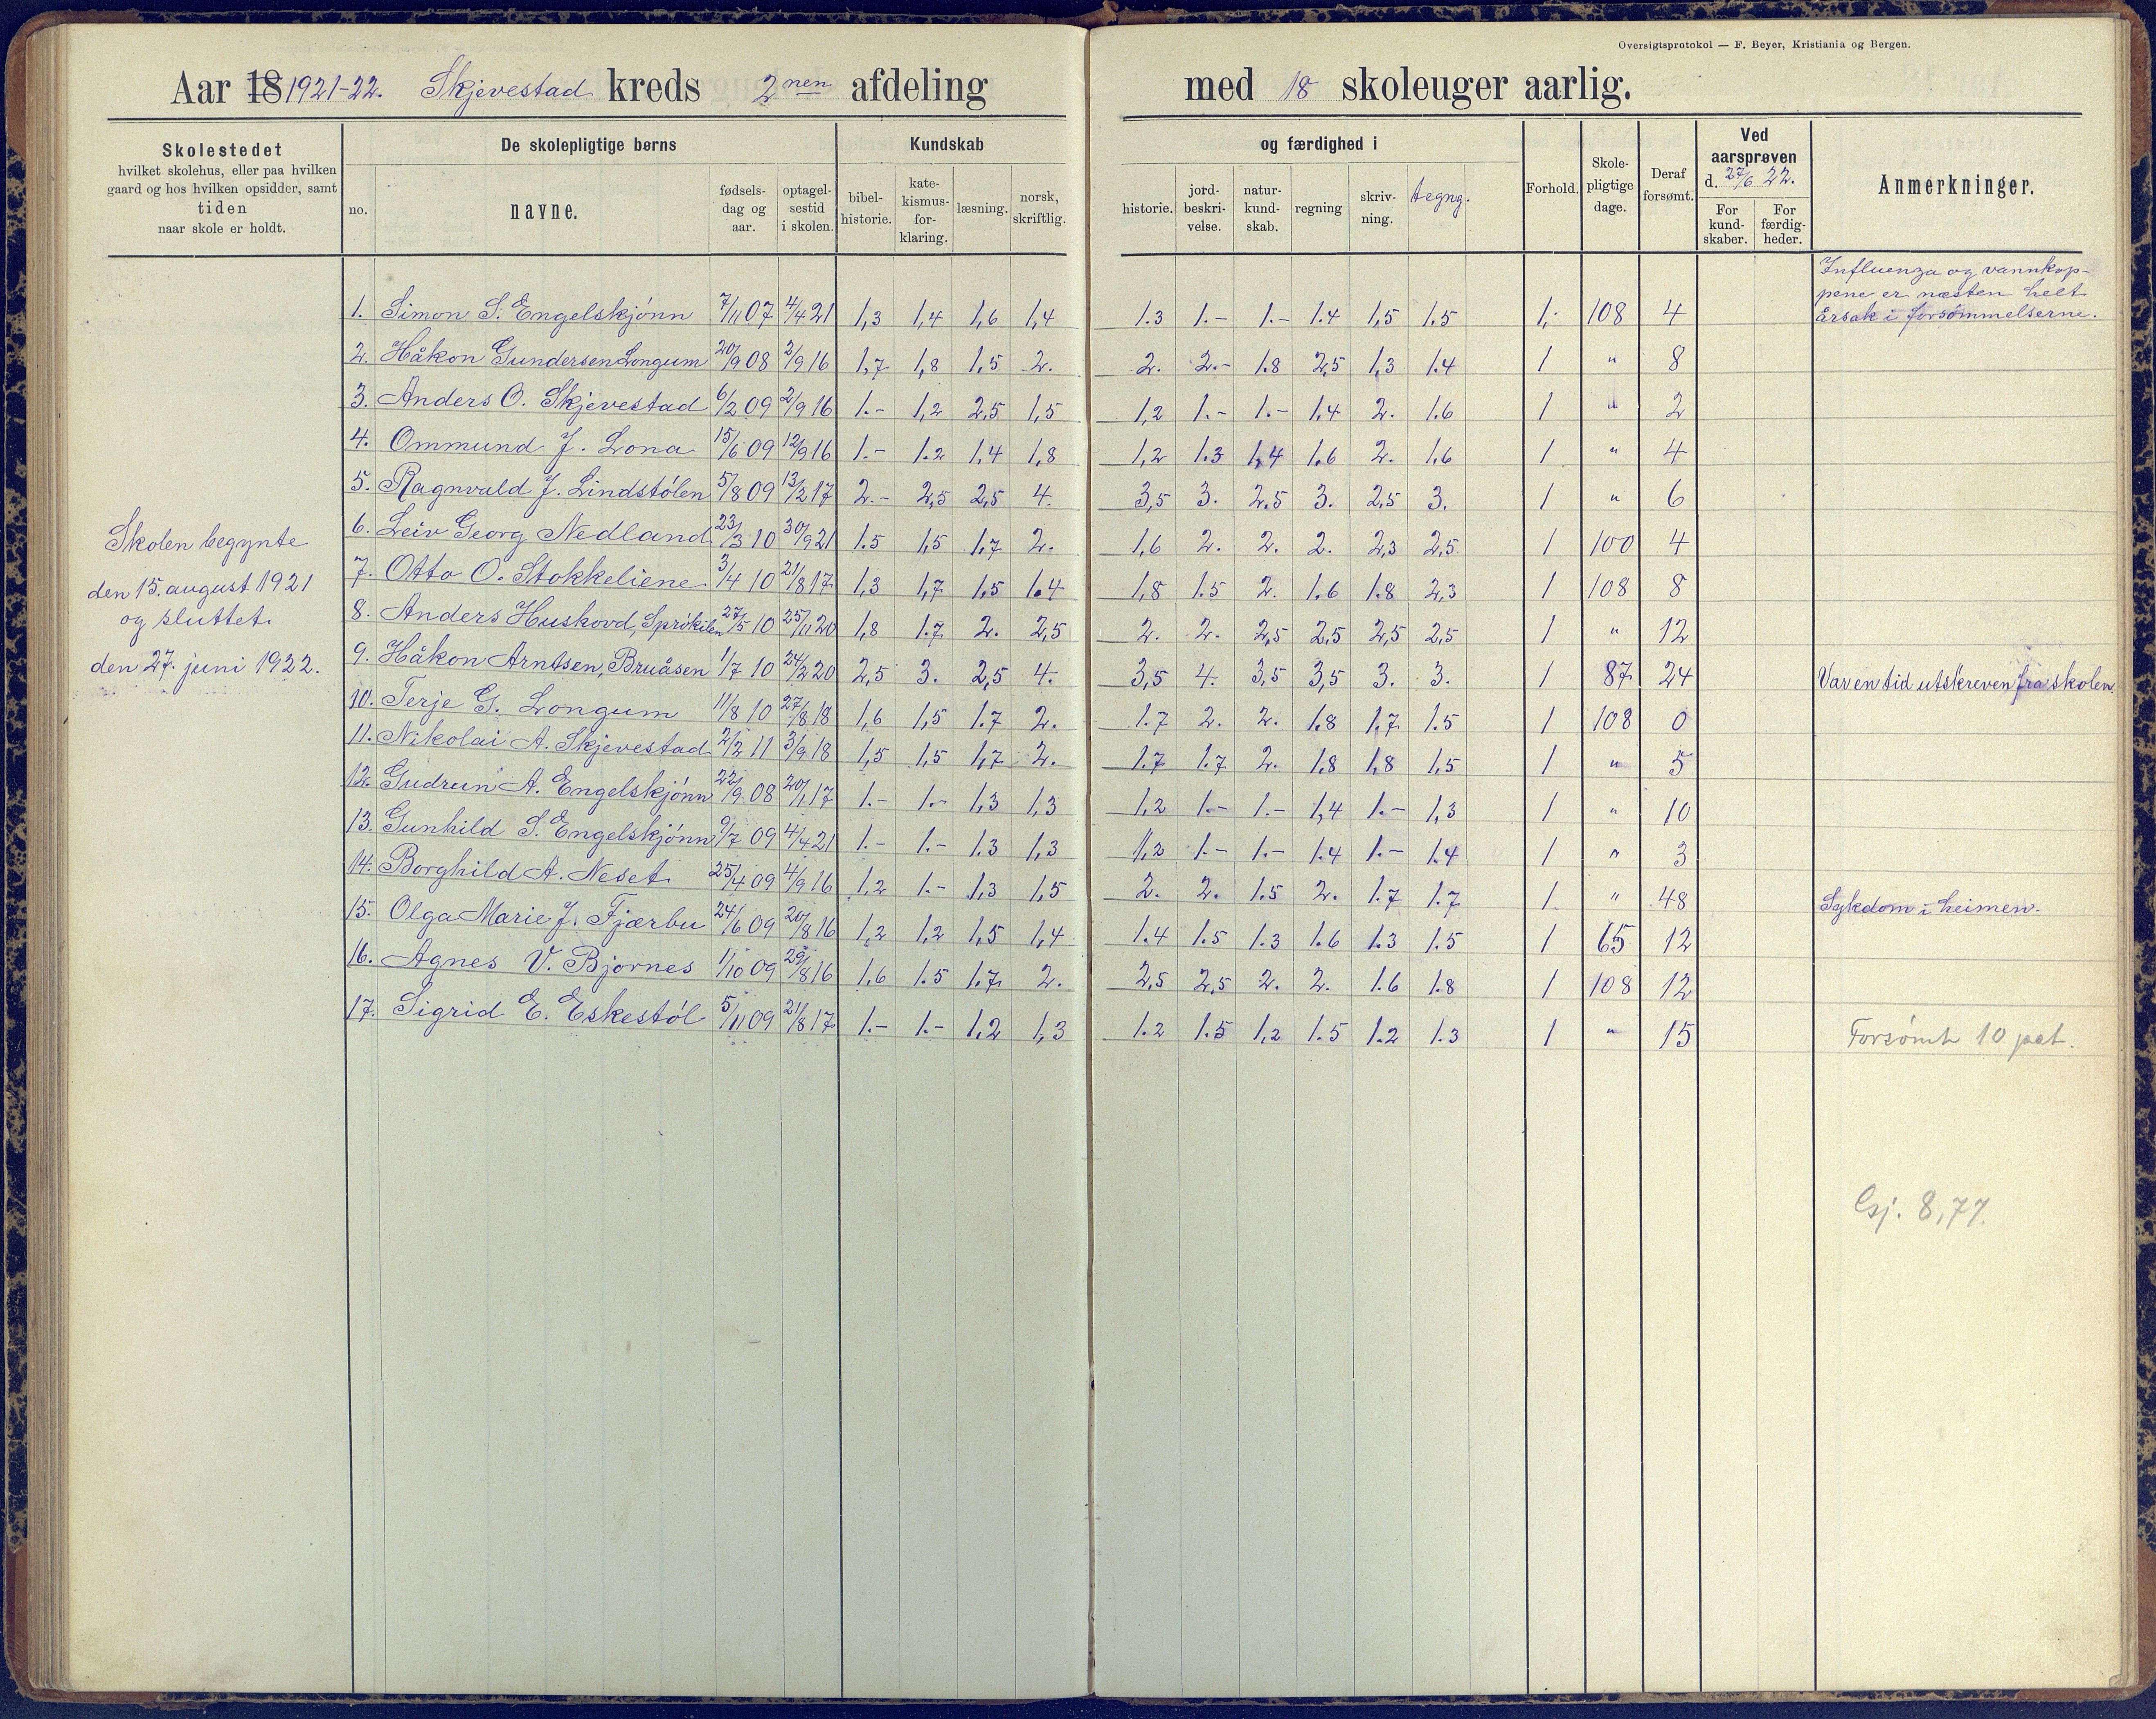 Oversigtsprotokol — F. Beyer, Kristiania og Bergen.
Aar 18 1921-22. Skjevestad kreds 2nen afdeling med 18 skoleuger aarlig.
Skolestedet
hvilket skolehus, eller paa hvilken
gaard og hos hvilken opsidder, samt
tiden
naar skole er holdt.
De skolepligtige børns
no.
navne.
fødsels-
dag og
aar.
optagel-
sestid
i skolen.
Kundskab
bibel-
historie.
kate-
kismus-
for-
klaring.
læsning.
norsk,
skriftlig.
og færdighed i
historie.
jord-
beskri-
velse.
natur-
kund-
skab.
regning
skriv-
ning.
tegng.
Forhold.
Skole-
pligtige
dage.
Deraf
forsømt.
Ved
aarsprøven
d. 27/6 22.
For
kund-
skaber.
For
færdig-
heder.
Anmerkninger.
Skolen begynte
den 15. august 1921
og sluttet
den 27. juni 1922.
Influenza og vannkop-
pene er næsten helt
årsak i forsømmelserne.
1. Simon S. Engelskjønn 7/11 07 4/4 21 1,3 1,4 1,6 1,4 1.3 1.- 1.- 1.4 1,5 1.5 1,- 108 4
2. Håkon Gundersen Longum 20/9 08 2/9 16 1,7 1,8 1,5 2. 2. 2.- 1.8 2,5 1,3 1.4 1 " 8
3. Anders O. Skjevestad 6/2 09 2/9 16 1.- 1,2 2,5 1,5 1,2 1.- 1.- 1,4 2. 1.6 1 " 2
4. Ommund J. Lona 15/6 09 12/9 16 1.- 1.2 1,4 1,8 1,2 1.3 1,4 1.6 2. 1,6 1 " 4
5. Ragnvald J. Lindstølen 5/8 09 13/2 17 2.- 2,5 2,5 4. 3,5 3. 2.5 3. 2,5 3. 1 " 6
6. Leiv Georg Nedland 23/3 10 30/9 21 1.5 1,5 1,7 2. 1,6 2. 2. 2. 2,3 2,5 1 100 4
7. Otto O. Stokkeliene 3/4 10 21/8 17 1,3 1,7 1,5 1.4 1,8 1.5 2. 1.6 1.8 2,3 1 108 8
8. Anders Huskovd, Sprøkilen 27/5 10 25/11 20 1,8 1.7 2. 2,5 2. 2. 2,5 2,5 2,5 2,5 1 " 12
9. Håkon Arntsen, Bruåsen 1/7 10 24/2 20 2,5 3. 2,5 4. 3,5 4. 3,5 3,5 3. 3. 1 87 24 Var en tid utskreven fra skolen.
10. Terje G. Longum 11/8 10 27/8 18 1,6 1,5 1.7 2. 1.7 2. 2. 1.8 1.7 1.5 1 108 0
11. Nikolai A. Skjevestad 2/2 11 3/9 18 1,5 1,5 1,7 2. 1.7 1.7 2. 1.8 1,8 1,5 1 " 5
12. Gudrun A. Engelskjønn 22/9 08 20/1 17 1.- 1.- 1,3 1,3 1,2 1.- 1.- 1,4 1.- 1,3 1 " 10
13. Gunhild S. Engelskjønn 9/7 09 4/4 21 1.- 1.- 1.3 1,3 1,2 1.- 1.- 1.4 1.- 1.4 1 " 3
14. Borghild A. Neset 25/4 09 4/9 16 1,2 1.- 1,3 1,5 2. 2. 1.5 2. 1.7 1.7 1 " 48 Sykdom i heimen.
15. Olga Marie J. Fjærbu 24/6 09 20/8 16 1,2 1,2 1,5 1,4 1.4 1.5 1.3 1.6 1.3 1.5 1 65 12
16. Agnes V. Bjornes 1/10 09 29/8 16 1,6 1.5 1.7 2. 2,5 2,5 2. 2. 1.6 1.8 1 108 12
17. Sigrid E. Eskestøl 5/11 09 21/8 17 1.- 1.- 1,2 1,3 1.2 1.5 1,2 1.5 1.2 1.3 1 " 15 Forsømt 10 pct.
8,77.